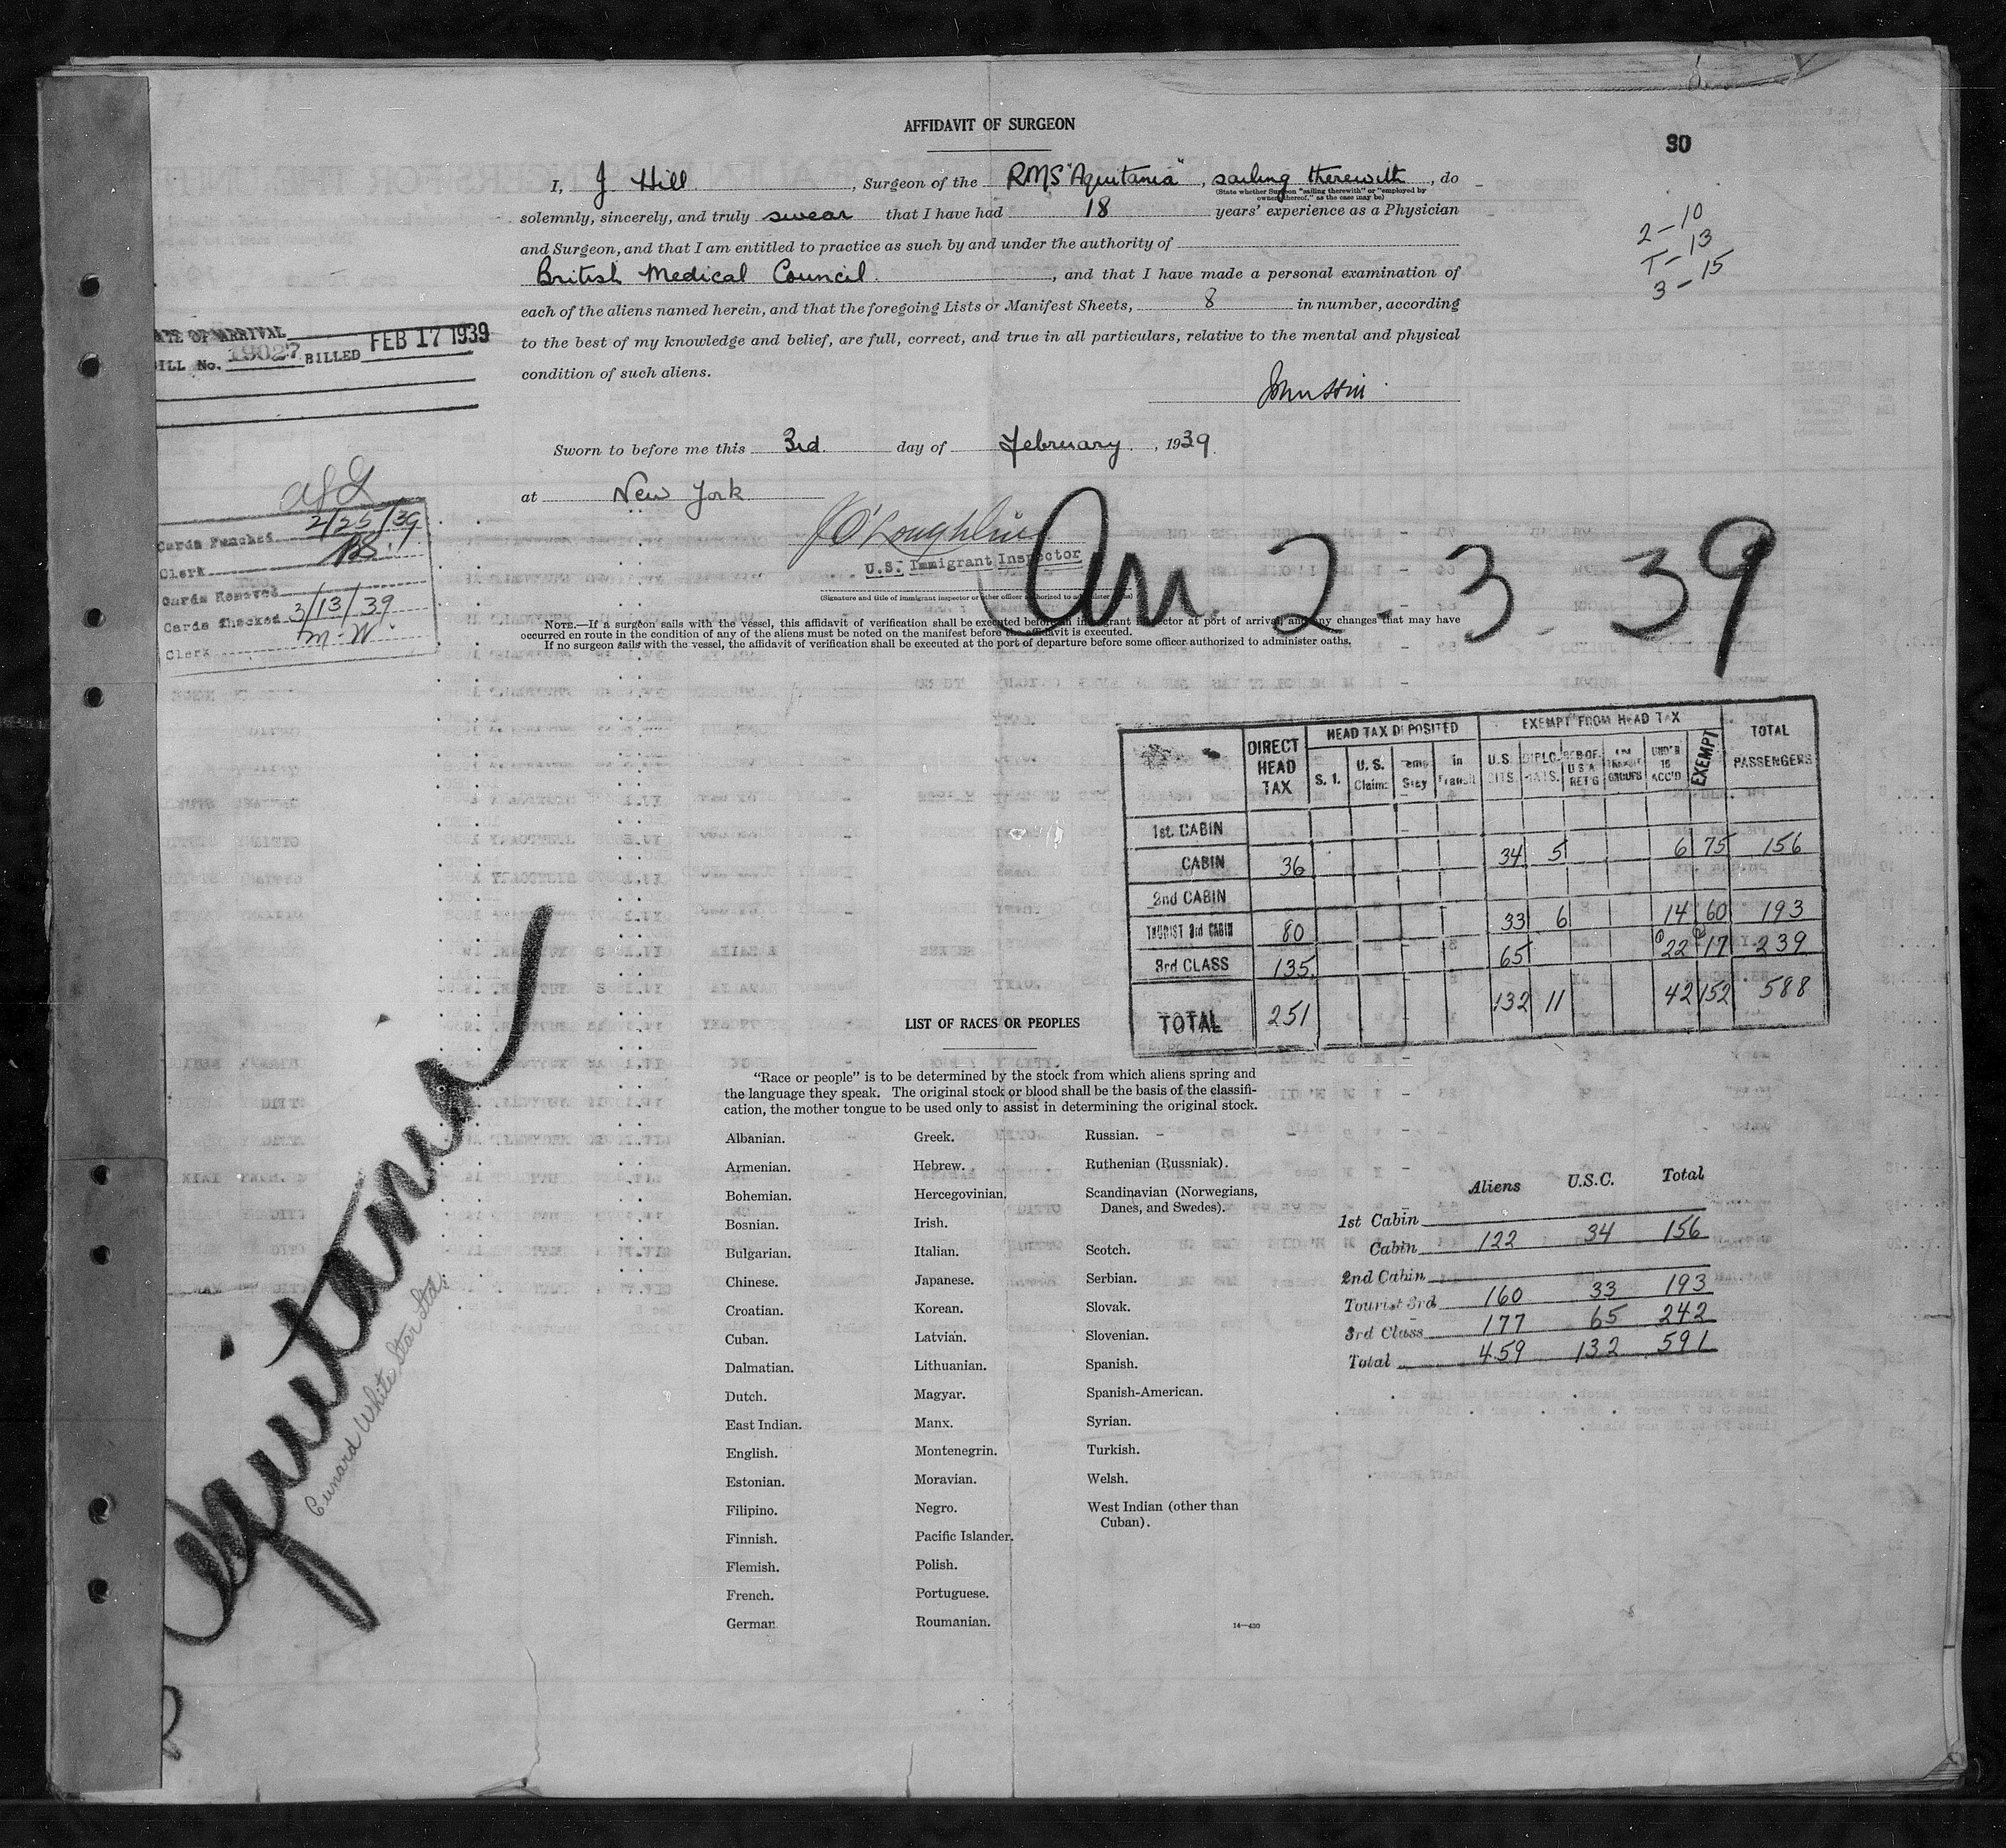 AFFIDAVIT OF SURGEON
30
I, J Hill, Surgeon of the RMS "Aquitania", sailing therewith, do
(State whether Surgeon "sailing therewith" or "employed by
owners thereof," as the case may be)
solemnly, sincerely, and truly swear that I have had 18 years' experience as a Physician
and Surgeon, and that I am entitled to practice as such by and under the authority of
British Medical Council., and that I have made a personal examination of
each of the aliens named herein, and that the foregoing Lists or Manifest Sheets, 8 in number, according
to the best of my knowledge and belief, are full, correct, and true in all particulars, relative to the mental and physical
condition of such aliens.
John Hill.
2-10
T-13
3-15
ATE OF ARRIVAL
BILL No. 19027 BILLED FEB 17 1939
Sworn to before me this 3rd. day of February, 1939.
at New York
J O'Loughlin
U.S. Immigrant Inspector
(Signature and title of immigrant inspector or other officer authorized to administer oaths)
Arr. 2. 3. 39
NOTE.—If a surgeon sails with the vessel, this affidavit of verification shall be executed before an immigrant inspector at port of arrival, and any changes that may have
occurred en route in the condition of any of the aliens must be noted on the manifest before the affidavit is executed.
If no surgeon sails with the vessel, the affidavit of verification shall be executed at the port of departure before some officer authorized to administer oaths.
Cards Punched 2/25/39
Clerk
Cards Removed
Cards Checked 3/13/39
Clerk M.W.
DIRECT HEAD TAX
HEAD TAX DEPOSITED
S. I. U. S. Claim: Temp Stay in Transit
EXEMPT FROM HEAD TAX
U.S. CITS. DIPLO-MATS. REB OF. USA RET'G IN TRANSIT GROUPS UNDER 16 ACC'D EXEMPT
TOTAL PASSENGERS
1st. CABIN
CABIN 36 34 5 6 75 156
2nd CABIN
TOURIST 3rd CABIN 80 33 6 14 60 193
3rd CLASS 135 65 22 17 239
TOTAL 251 132 11 42 152 588
Aquitania
Cunard White Star Ltd.
LIST OF RACES OR PEOPLES
"Race or people" is to be determined by the stock from which aliens spring and
the language they speak. The original stock or blood shall be the basis of the classifi-
cation, the mother tongue to be used only to assist in determining the original stock.
Albanian.
Armenian.
Bohemian.
Bosnian.
Bulgarian.
Chinese.
Croatian.
Cuban.
Dalmatian.
Dutch.
East Indian.
English.
Estonian.
Filipino.
Finnish.
Flemish.
French.
German
Greek.
Hebrew.
Hercegovinian.
Irish.
Italian.
Japanese.
Korean.
Latvian.
Lithuanian.
Magyar.
Manx.
Montenegrin.
Moravian.
Negro.
Pacific Islander.
Polish.
Portuguese.
Roumanian.
Russian.
Ruthenian (Russniak).
Scandinavian (Norwegians,
Danes, and Swedes).
Scotch.
Serbian.
Slovak.
Slovenian.
Spanish.
Spanish-American.
Syrian.
Turkish.
Welsh.
West Indian (other than
Cuban).
Aliens U.S.C. Total
1st Cabin
Cabin 122 34 156
2nd Cabin
Tourist 3rd 160 33 193
3rd Class 177 65 242
Total 459 132 591
14—430